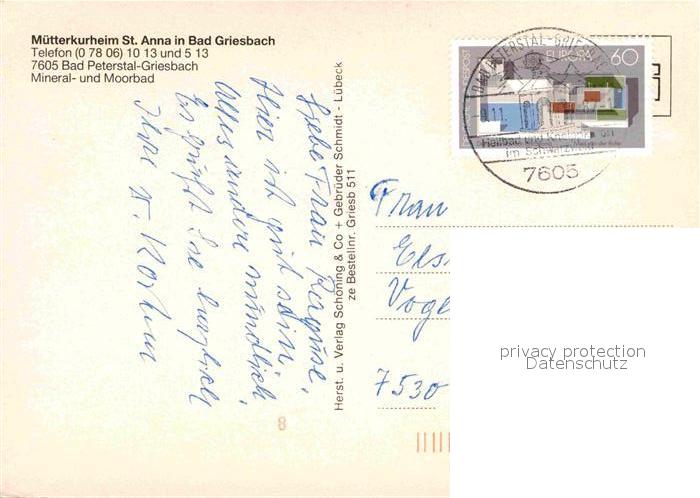 Mütterkurheim St. Anna in Bad Griesbach
Telefon (0 78 06) 10 13 und 5 13
7605 Bad Peterstal-Griesbach
Mineral- und Moorbad
Liebe Frau
Hier ist gut sein,
alles andere mündlich.
Es grüßt Sie herzlich
Ihre
Herst. u. Verlag Schöning & Co + Gebrüder Schmidt - Lübeck
ze Bestellnr. Griesb 511
BAD PETERSTAL-GRIESB
EUROPA 60
Heilbad und Kneippkurort
im Schwarzwald
7605
Frau
Els
Voge
7530
8
privacy protection
Datenschutz